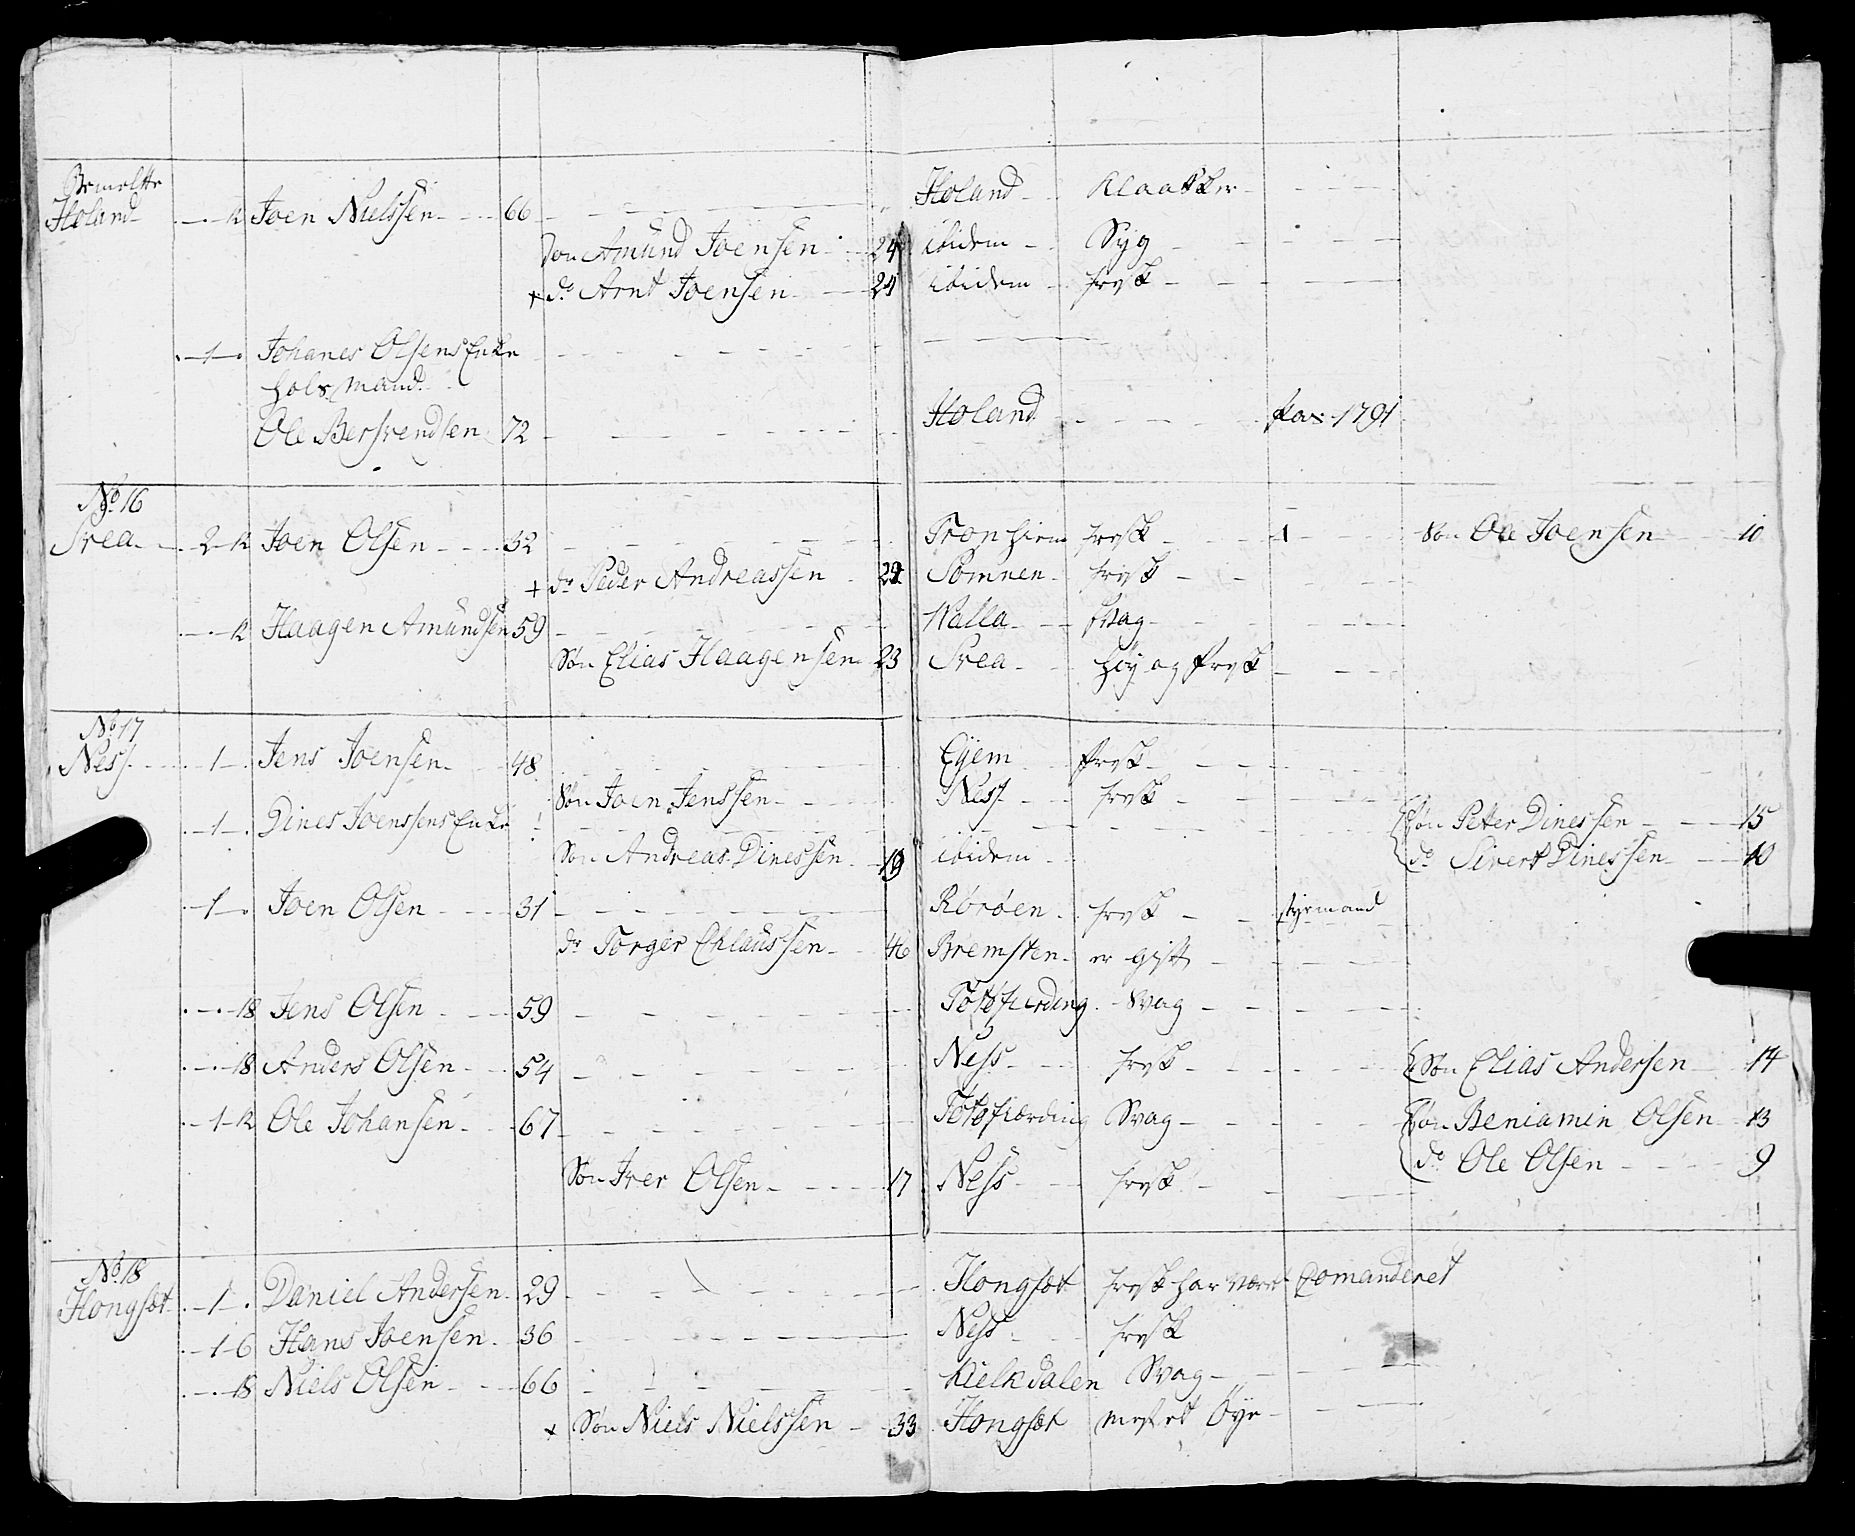 Holand - . - . - 12 Joen Nielssen - - - 66 - - - Holand - -
Søn Amund Joensen - - 24 ibidem - Syg - - -
+ do Arnt Joensen - - 24 ibidem - frisk - - -
. - 1 - . Johanes Olsens Enke - - -
Huusmand
Ole Bersvendsen 72 - - - Holand - - - 1791
No. 16
Srea - . - 2 - 12 Joen Olsen - - - 32 - - - Tronhiem frisk - - 1 - - Søn Ole Joensen - - 10
+ dr Peder Andreassen - 29 Somnen - frisk - -
. - . - 12 Haagen Amundsen 59 - - - Walla - - Svag - - -
Søn Elias Haagensen 23 Srea - - høy og frisk - -
No 17
Ness - - . - 1 - . Jens Joensen - - 48 - - - Egem - frisk - - -
Søn Joen Jenssen - - - Ness - - frisk - - -
. - 1 - . Dines Joenssens Enke - - - Søn Peter Dinessen - - 15
Søn Andreas Dinessen - 19 ibidem - do Sivert Dinessen - - 10
. - 1 - . Joen Olsen - - - 31 - - - Rørøen - frisk - - styrmand
dr Torger Chlaussen - - 46 Bremsten - er gift - - -
. - . - 18 Jens Olsen - - - 59 - - - Totsfierding - Svag - - -
. - . - 18 Anders Olsen - - 54 - - - Ness - - frisk - - - Søn Elias Andersen - 14
. - 1 - 12 Ole Johansen - - 67 - - - Totsfierding Svag - - - Søn Beniamin Olsen - 13
do Ole Olsen - - - 9
Søn Iver Olsen - - - 17 Ness - - frisk - - -
No. 18
Hongsæt . - 1 - . Daniel Andersen - 29 - - - Hongsæt frisk har været Comanderet
. - 1 - 6 Hans Joensen - 36 - - - Ness - - frisk
. - . - 18 Niels Olsen - - - 66 - - - Kielkdalen Svag - - -
+ Søn Niels Nielssen - - 33 Hongsæt mist et Øye - - -